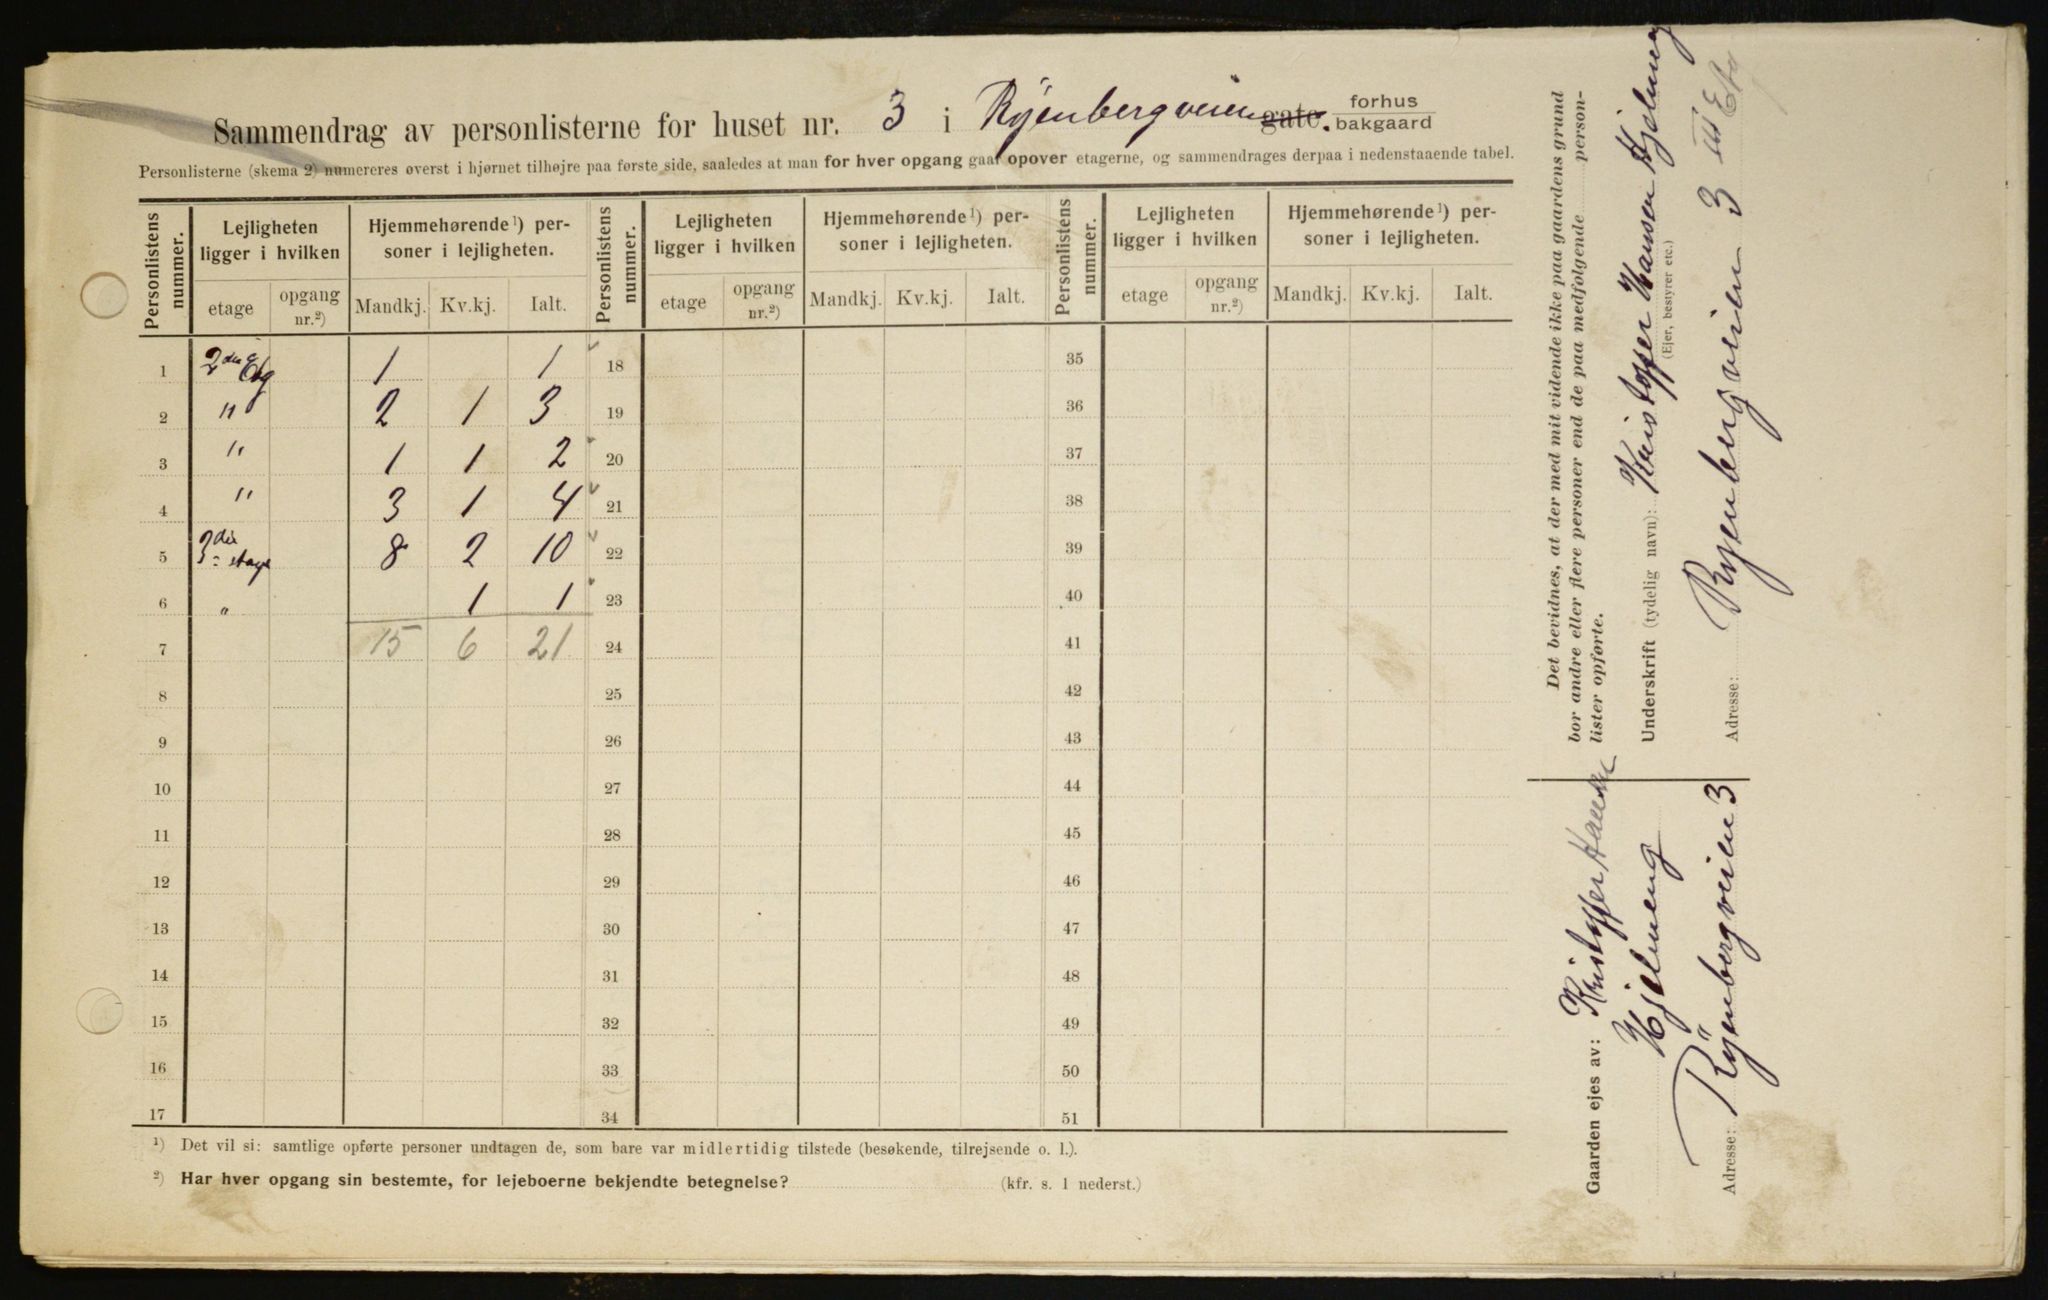 Sammendrag av personlisterne for huset nr. 3 i Ryenbergveien gate. forhus bakgaard
Personlisterne (skema 2) numereres øverst i hjørnet tilhøjre paa første side, saaledes at man for hver opgang gaar opover etagerne, og sammendrages derpaa i nedenstaaende tabel.
Personlistens nummer. Lejligheten ligger i hvilken Hjemmehørende ¹) personer i lejligheten. Personlistens nummer. Lejligheten ligger i hvilken Hjemmehørende ¹) personer i lejligheten. Personlistens nummer. Lejligheten ligger i hvilken Hjemmehørende ¹) personer i lejligheten.
etage opgang nr.²) Mandkj. Kv.kj. Ialt. etage opgang nr.²) Mandkj. Kv.kj. Ialt. etage opgang nr.²) Mandkj. Kv.kj. Ialt.
1 2den Etg 1 1 18 35
2 " 2 1 3 19 36
3 " 1 1 2 20 37
4 " 3 1 4 21 38
5 3die etage 8 2 10 22 39
6 " 1 1 23 40
7 15 6 21 24 41
8 25 42
9 26 43
10 27 44
11 28 45
12 29 46
13 30 47
14 31 48
15 32 49
16 33 50
17 34 51
¹) Det vil si: samtlige opførte personer undtagen de, som bare var midlertidig tilstede (besøkende, tilrejsende o. l.).
²) Har hver opgang sin bestemte, for lejeboerne bekjendte betegnelse? (kfr. s. 1 nederst.)
Det bevidnes, at der med mit vidende ikke paa gaardens grund
bor andre eller flere personer end de paa medfølgende personlister opførte.
Underskrift (tydelig navn): Kristoffer Hansen Hjelmeng
(Ejer, bestyrer etc.)
Adresse: Ryenbergveien 3 III Etg
Gaarden ejes av: Kristoffer Hansen
Hjelmeng
Adresse: Ryenbergveien 3